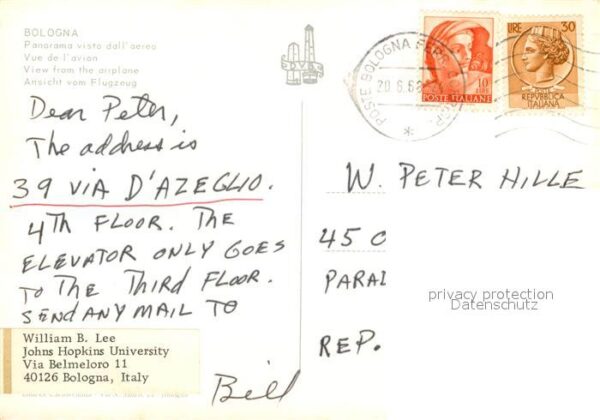 BOLOGNA
Panorama visto dall'aereo
Vue de l'avion
View from the airplane
Ansicht vom Flugzeug
Dear Peter,
The address is
39 VIA D'AZEGLIO.
4TH FLOOR. THE
ELEVATOR ONLY GOES
TO THE THIRD FLOOR.
SEND ANY MAIL TO
William B. Lee
Johns Hopkins University
Via Belmeloro 11
40126 Bologna, Italy
Bill
POSTE BOLOGNA
20.6.6
10
LIRE
POSTE ITALIANE
LIRE 30
REPVBBLICA
ITALIANA
W. PETER HILLE
45 C
PARA
REP.
privacy protection
Datenschutz